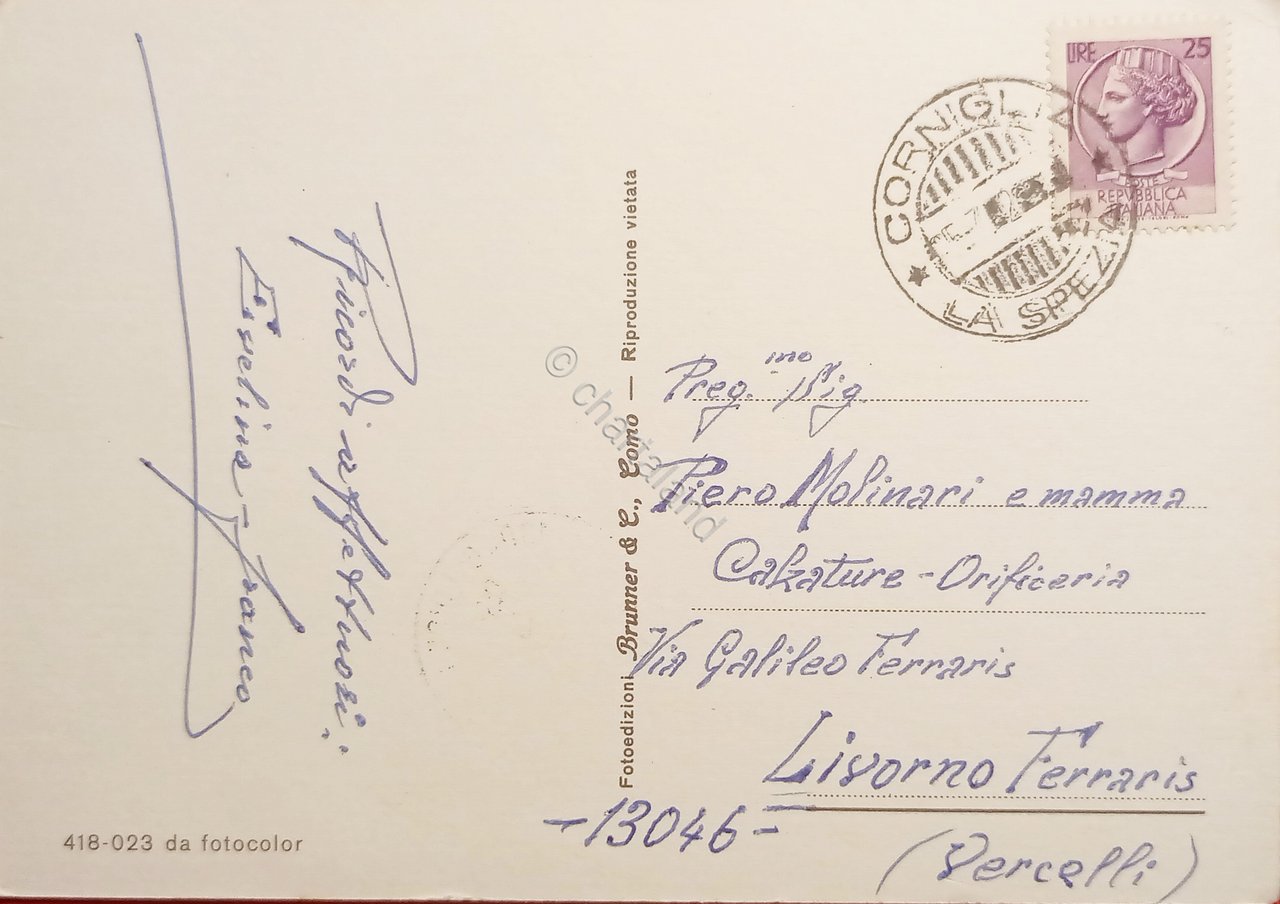 Ricordi affettuosi!
Evelina - Franco
418-023 da fotocolor
Fotoedizioni Brunner & C., Como — Riproduzione vietata
© chartaland
LIRE 25
POSTE
REPVBBLICA
ITALIANA
CORNIGLIA
LA SPEZIA
Preg.mo Sig.
Piero Molinari e mamma
Calzature - Orificeria
Via Galileo Ferraris
Livorno Ferraris
-13046-
(Vercelli)